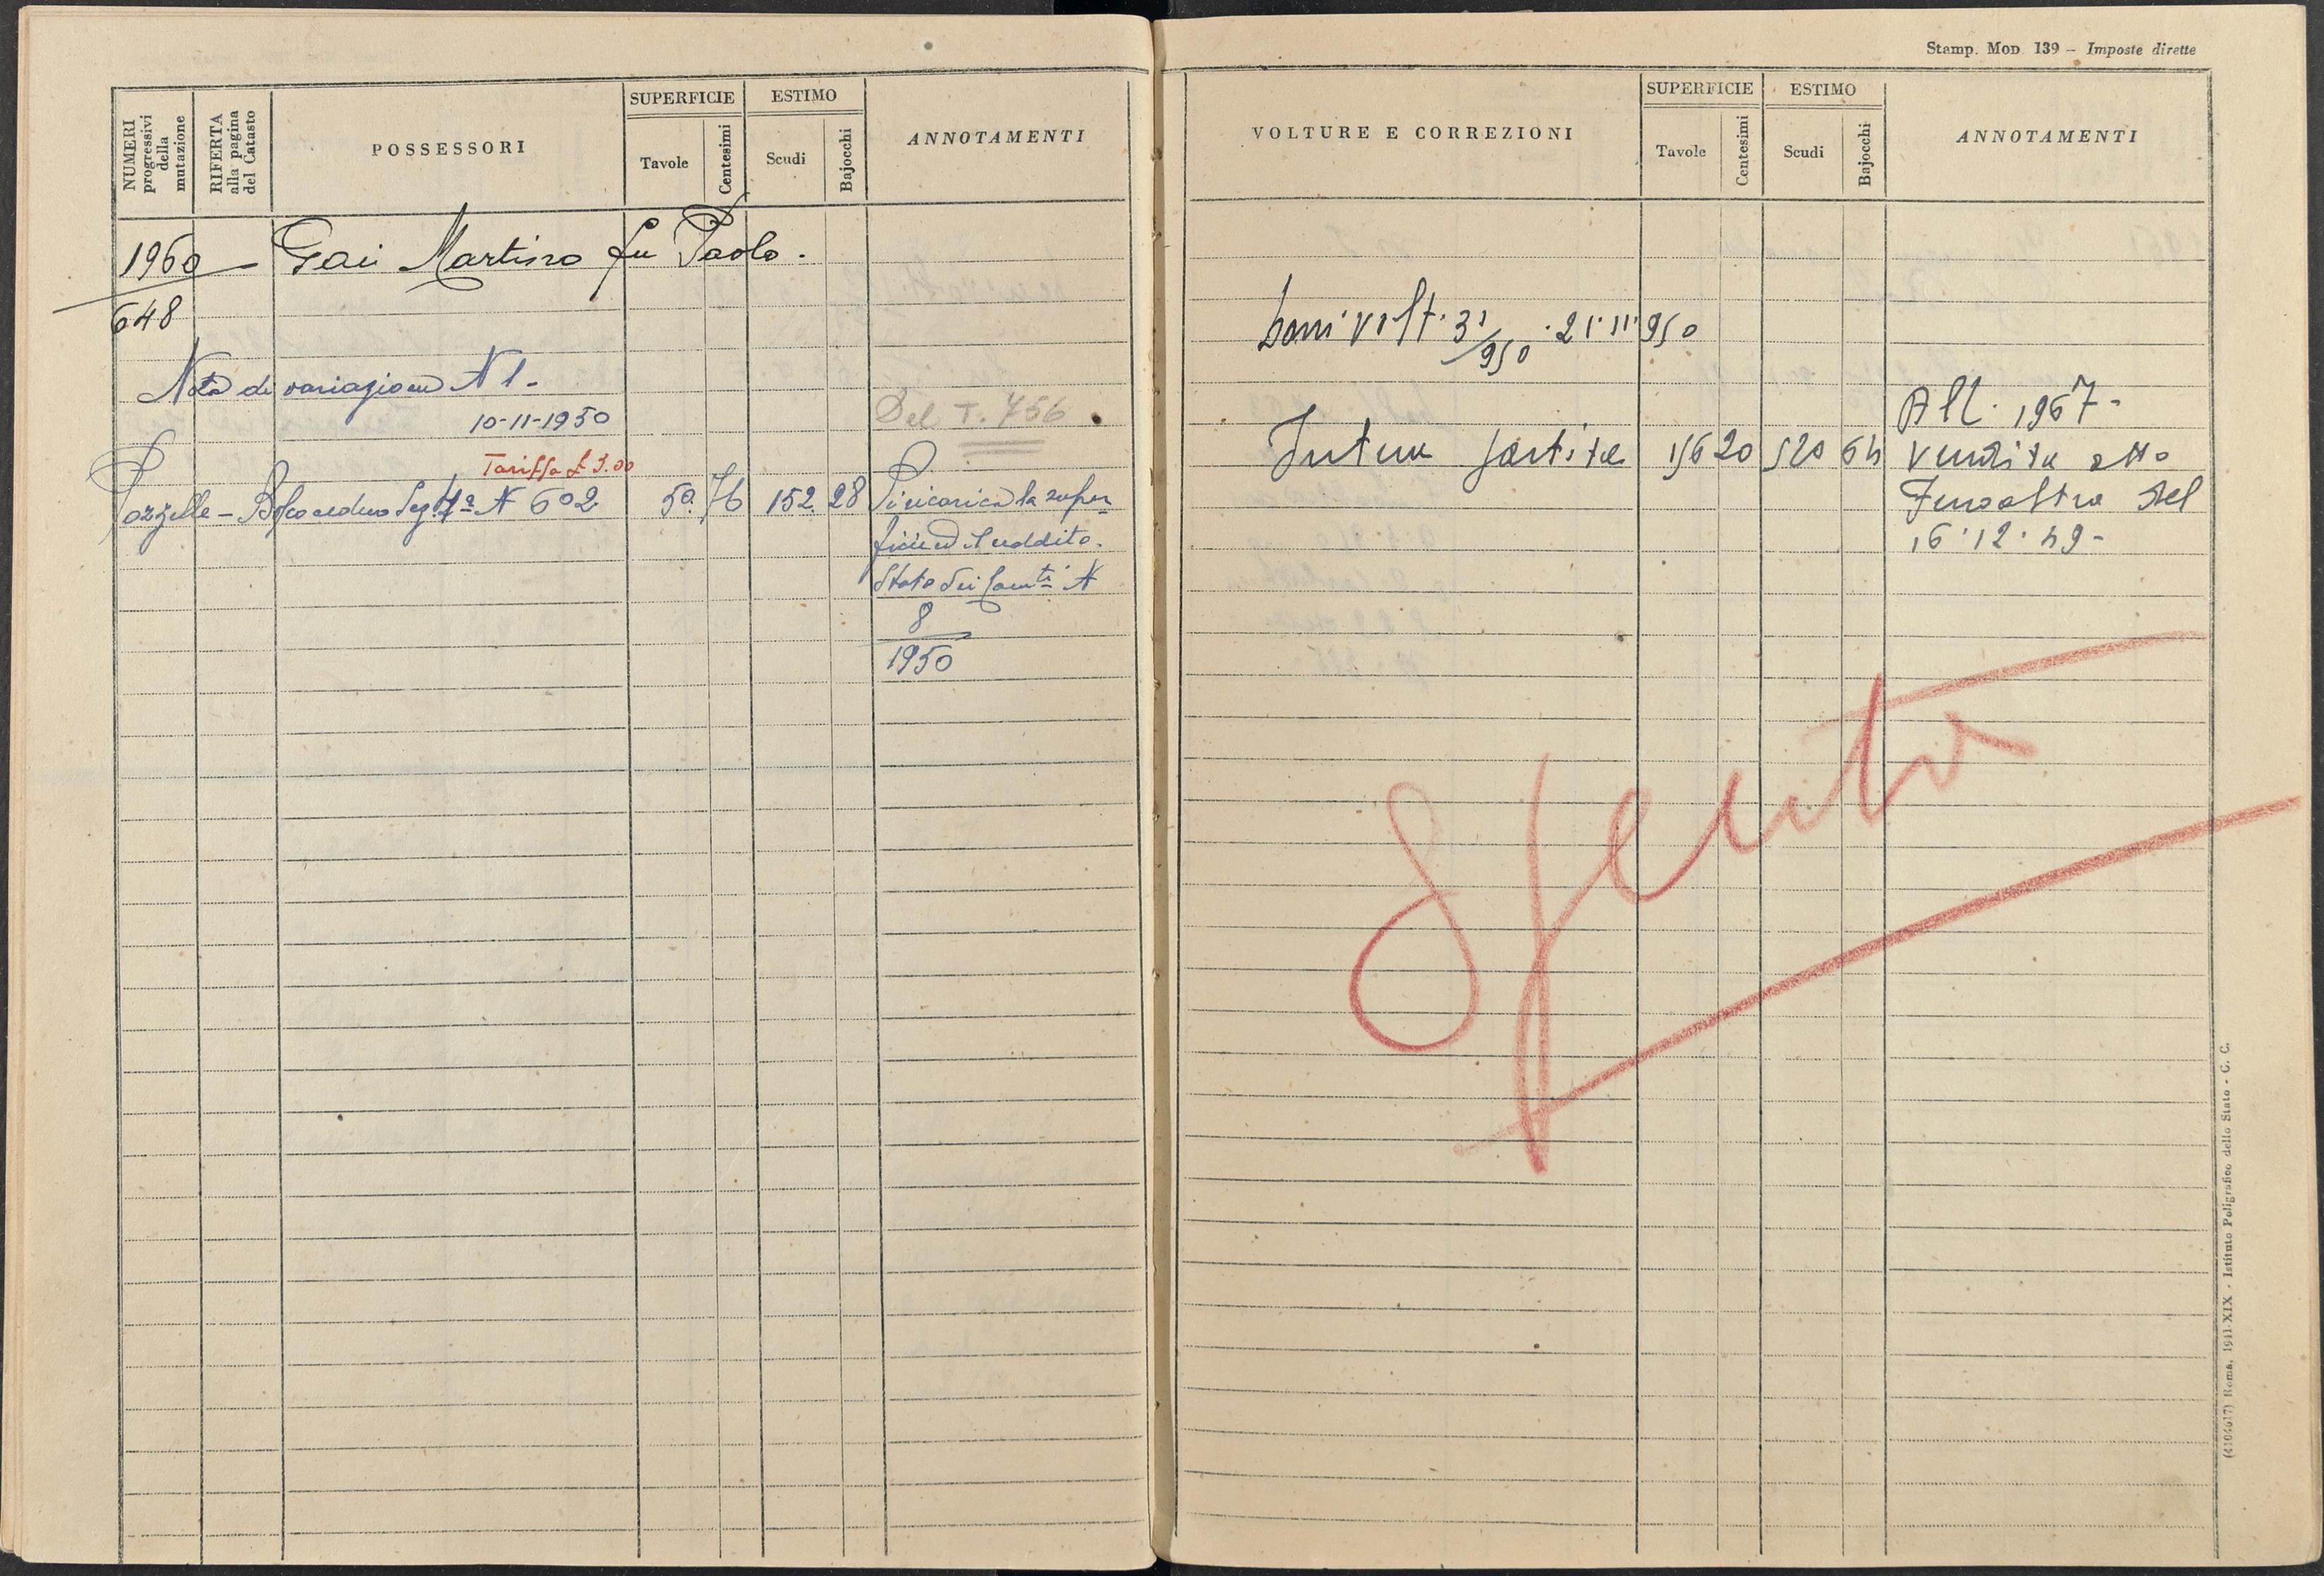 NUMERI progressivi della mutazione
RIFERTA alla pagina del Catasto
POSSESSORI
SUPERFICIE
Tavole
Centesimi
ESTIMO
Scudi
Bajocchi
ANNOTAMENTI
1960
648
Gai Martino fu Paolo.
Nota di variazione N 1.
10-11-1950
Del T. 756
Tariffa £ 3.00
Bosco ceduo Sez. 4ª N 602 50. 76 152. 28 Si ricarica la super
ficie ed il reddito.
Stato dei N
8
1950
Stamp. Mod 139 – Imposte dirette
VOLTURE E CORREZIONI
SUPERFICIE
Tavole
Centesimi
ESTIMO
Scudi
Bajocchi
ANNOTAMENTI
volt. 31/950 . 21.11.950
All. 1967-
Intera partita 156 20 520 64 vendita atto
del
16.12.49-
Spento
(4104617) Roma, 1941-XIX - Istituto Poligrafico dello Stato - G. C.